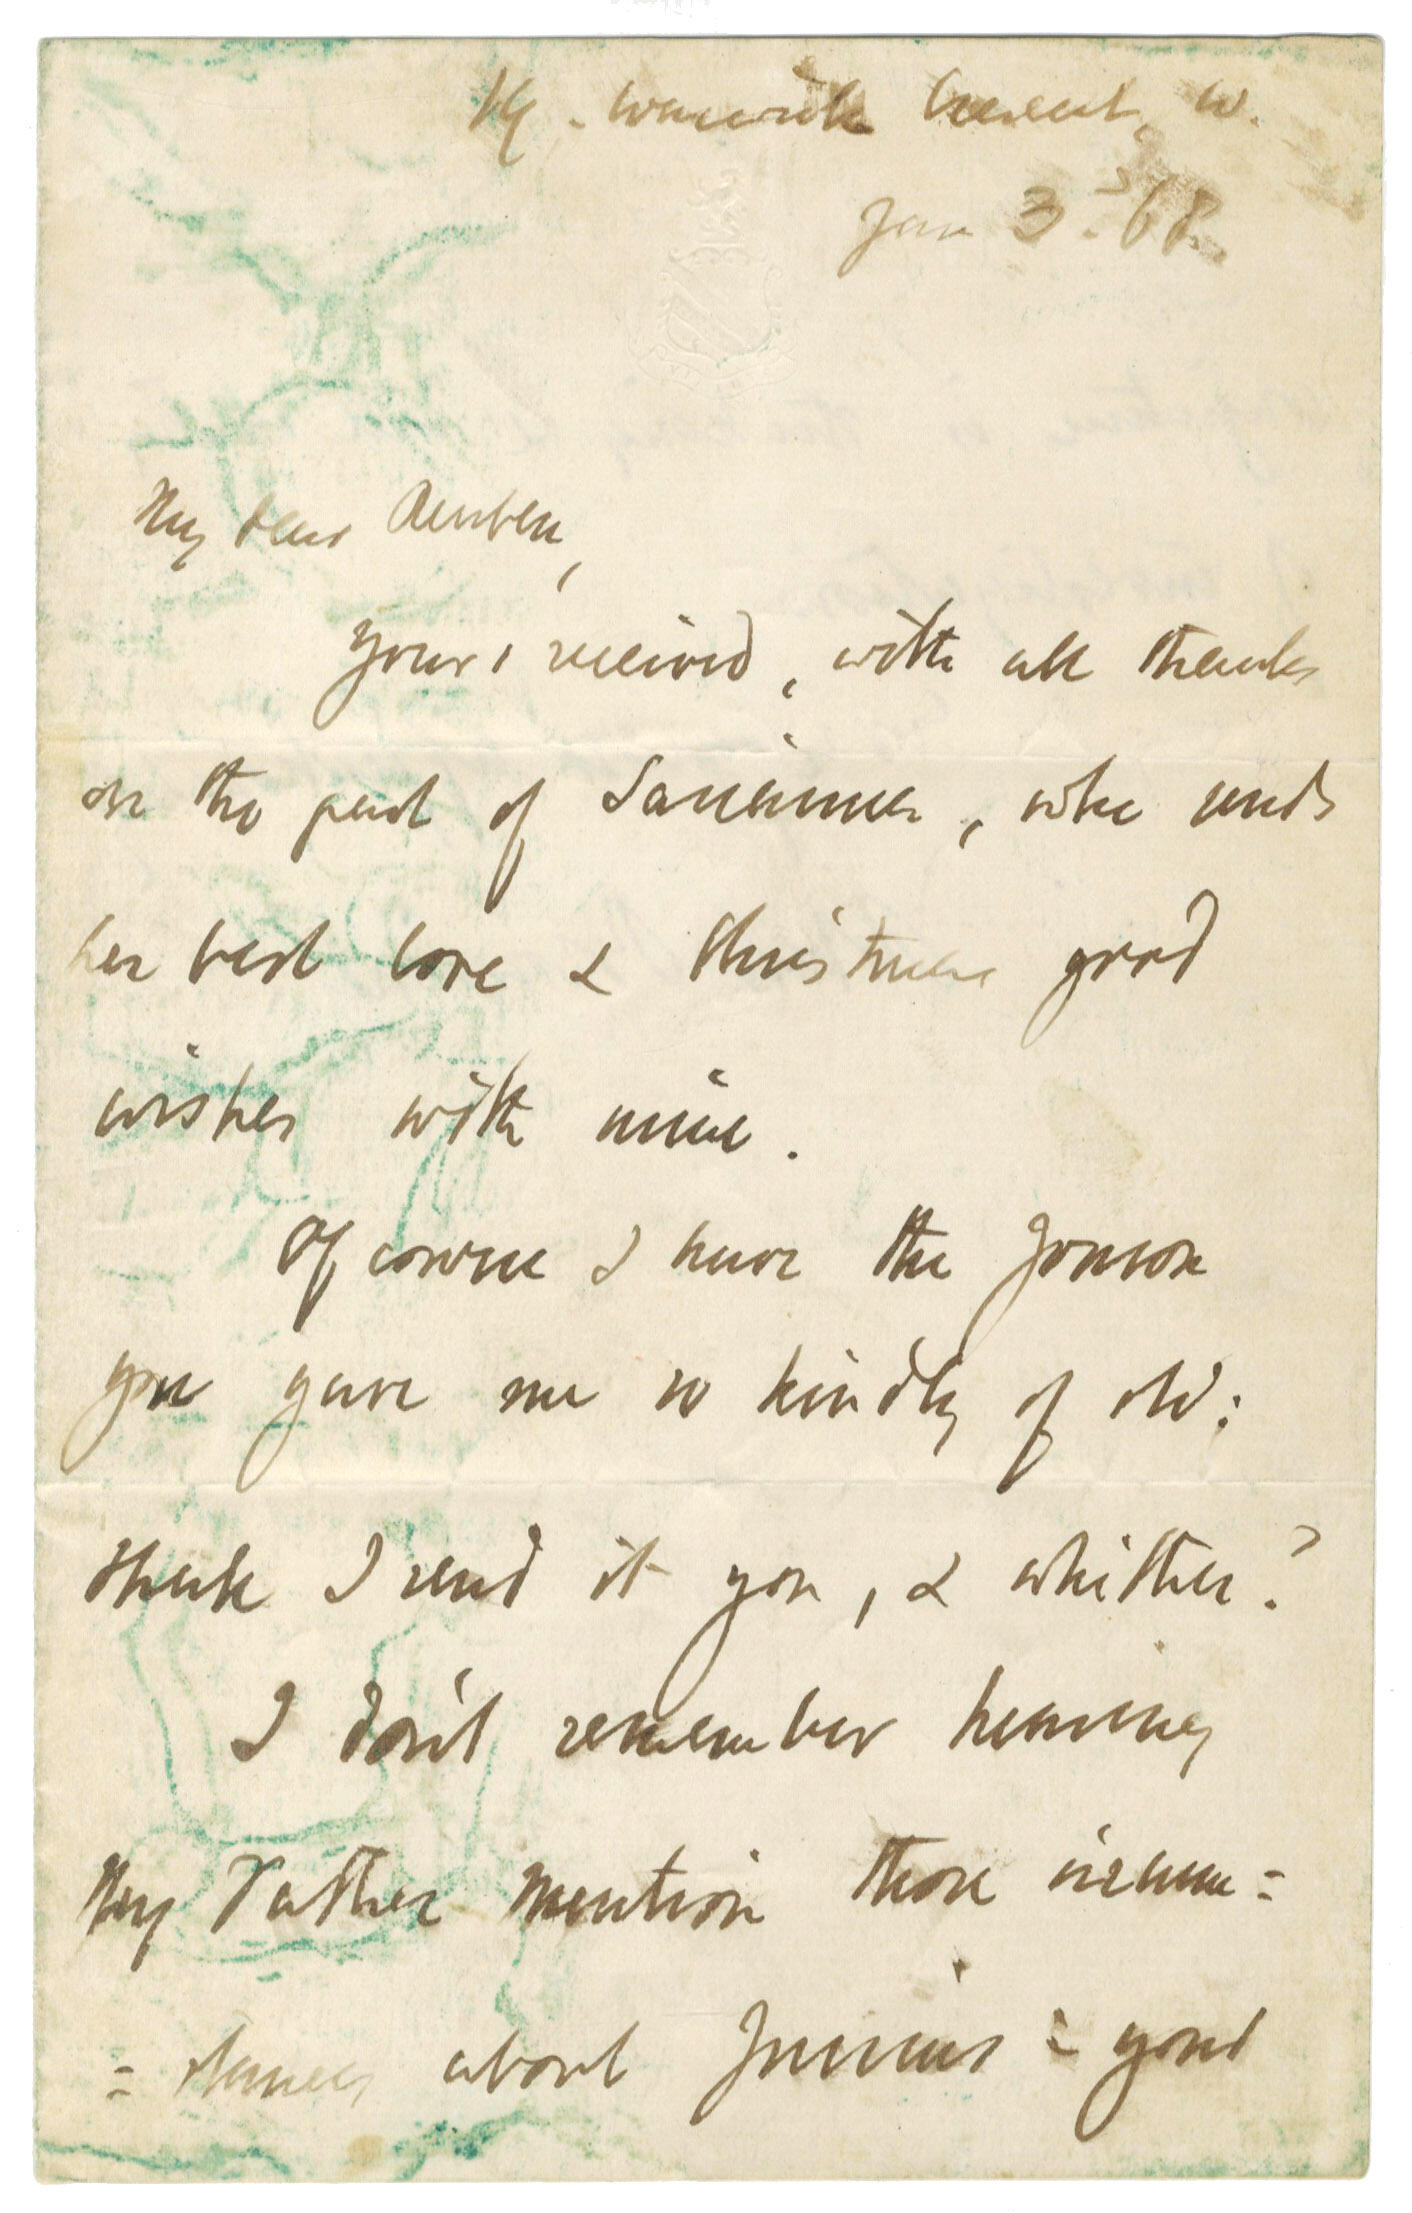 19. Warwick Crescent, W.
Jan 3. '68.
My dear Reuben,
Yours received, with all thanks
on the part of Sarianna, who sends
her best love & Christmas good
wishes with mine.
Of course I have the Jonson
you gave me so kindly of old:
shall I send it you, & whither?
I don't remember hearing
My Father mention those circum=
=stances about Junius = your